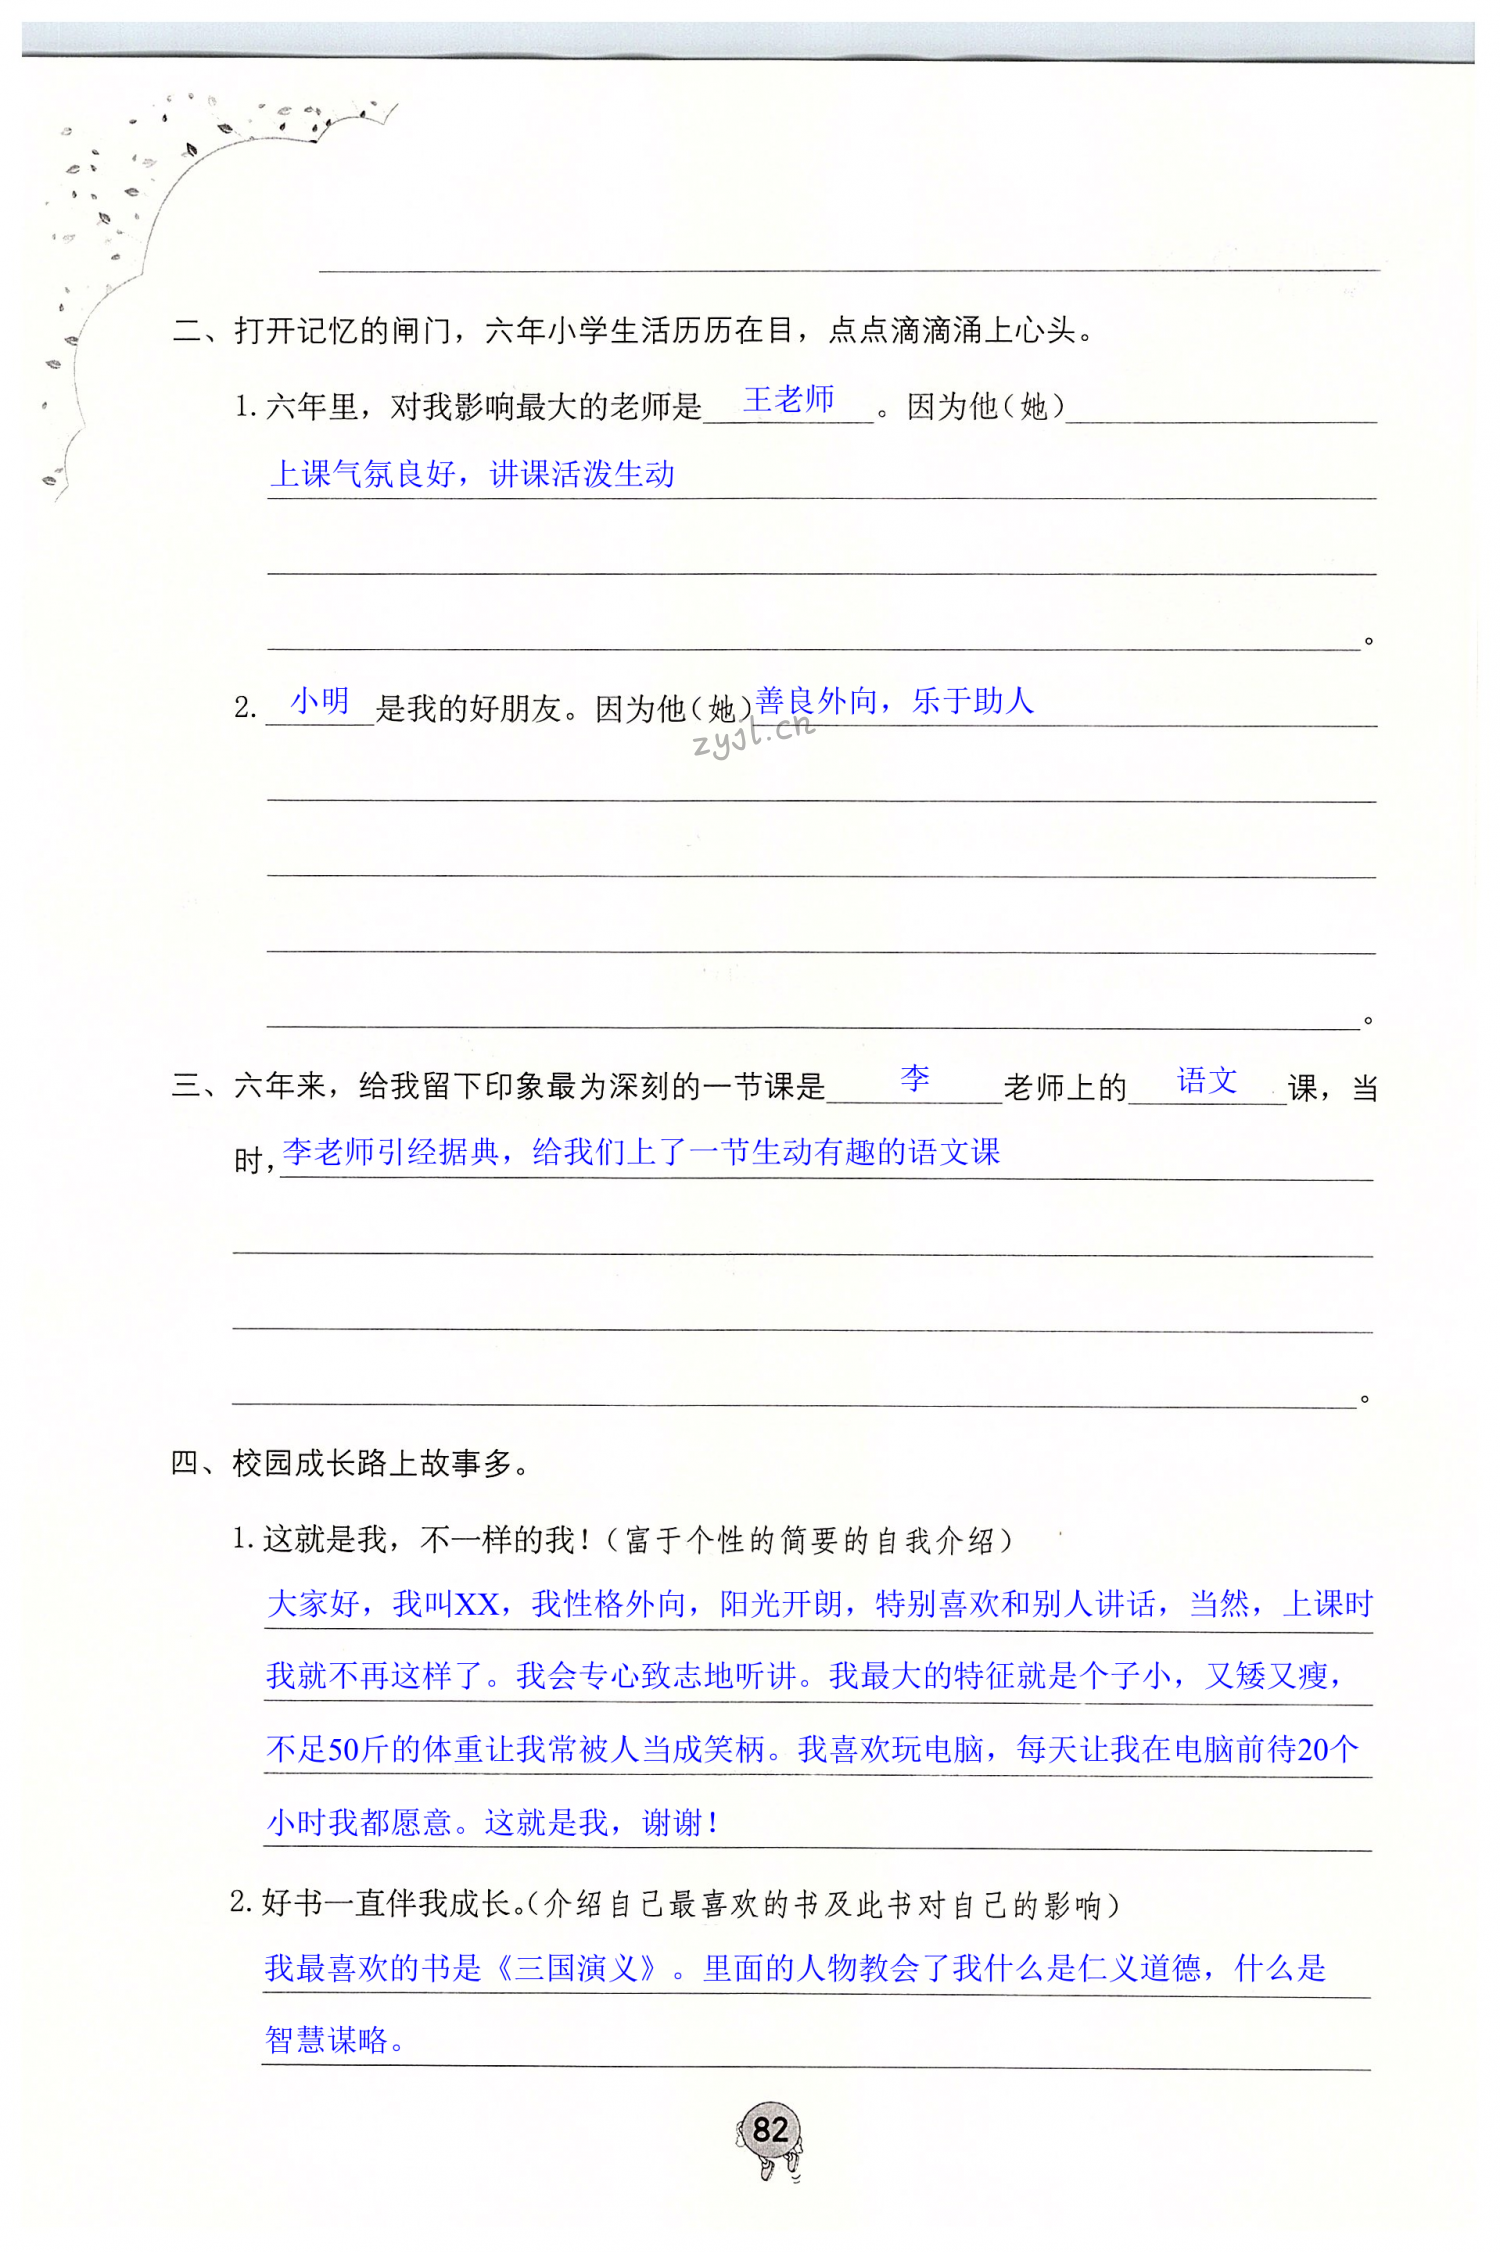 二、打开记忆的闸门，六年小学生活历历在目，点点滴滴涌上心头。
1. 六年里，对我影响最大的老师是 王老师 。因为他(她)
上课气氛良好，讲课活泼生动
。
2. 小明 是我的好朋友。因为他(她)善良外向，乐于助人
zyjl.cn
。
三、六年来，给我留下印象最为深刻的一节课是 李 老师上的 语文 课，当
时，李老师引经据典，给我们上了一节生动有趣的语文课
。
四、校园成长路上故事多。
1. 这就是我，不一样的我！(富于个性的简要的自我介绍)
大家好，我叫XX，我性格外向，阳光开朗，特别喜欢和别人讲话，当然，上课时
我就不再这样了。我会专心致志地听讲。我最大的特征就是个子小，又矮又瘦，
不足50斤的体重让我常被人当成笑柄。我喜欢玩电脑，每天让我在电脑前待20个
小时我都愿意。这就是我，谢谢！
2. 好书一直伴我成长。(介绍自己最喜欢的书及此书对自己的影响)
我最喜欢的书是《三国演义》。里面的人物教会了我什么是仁义道德，什么是
智慧谋略。
82